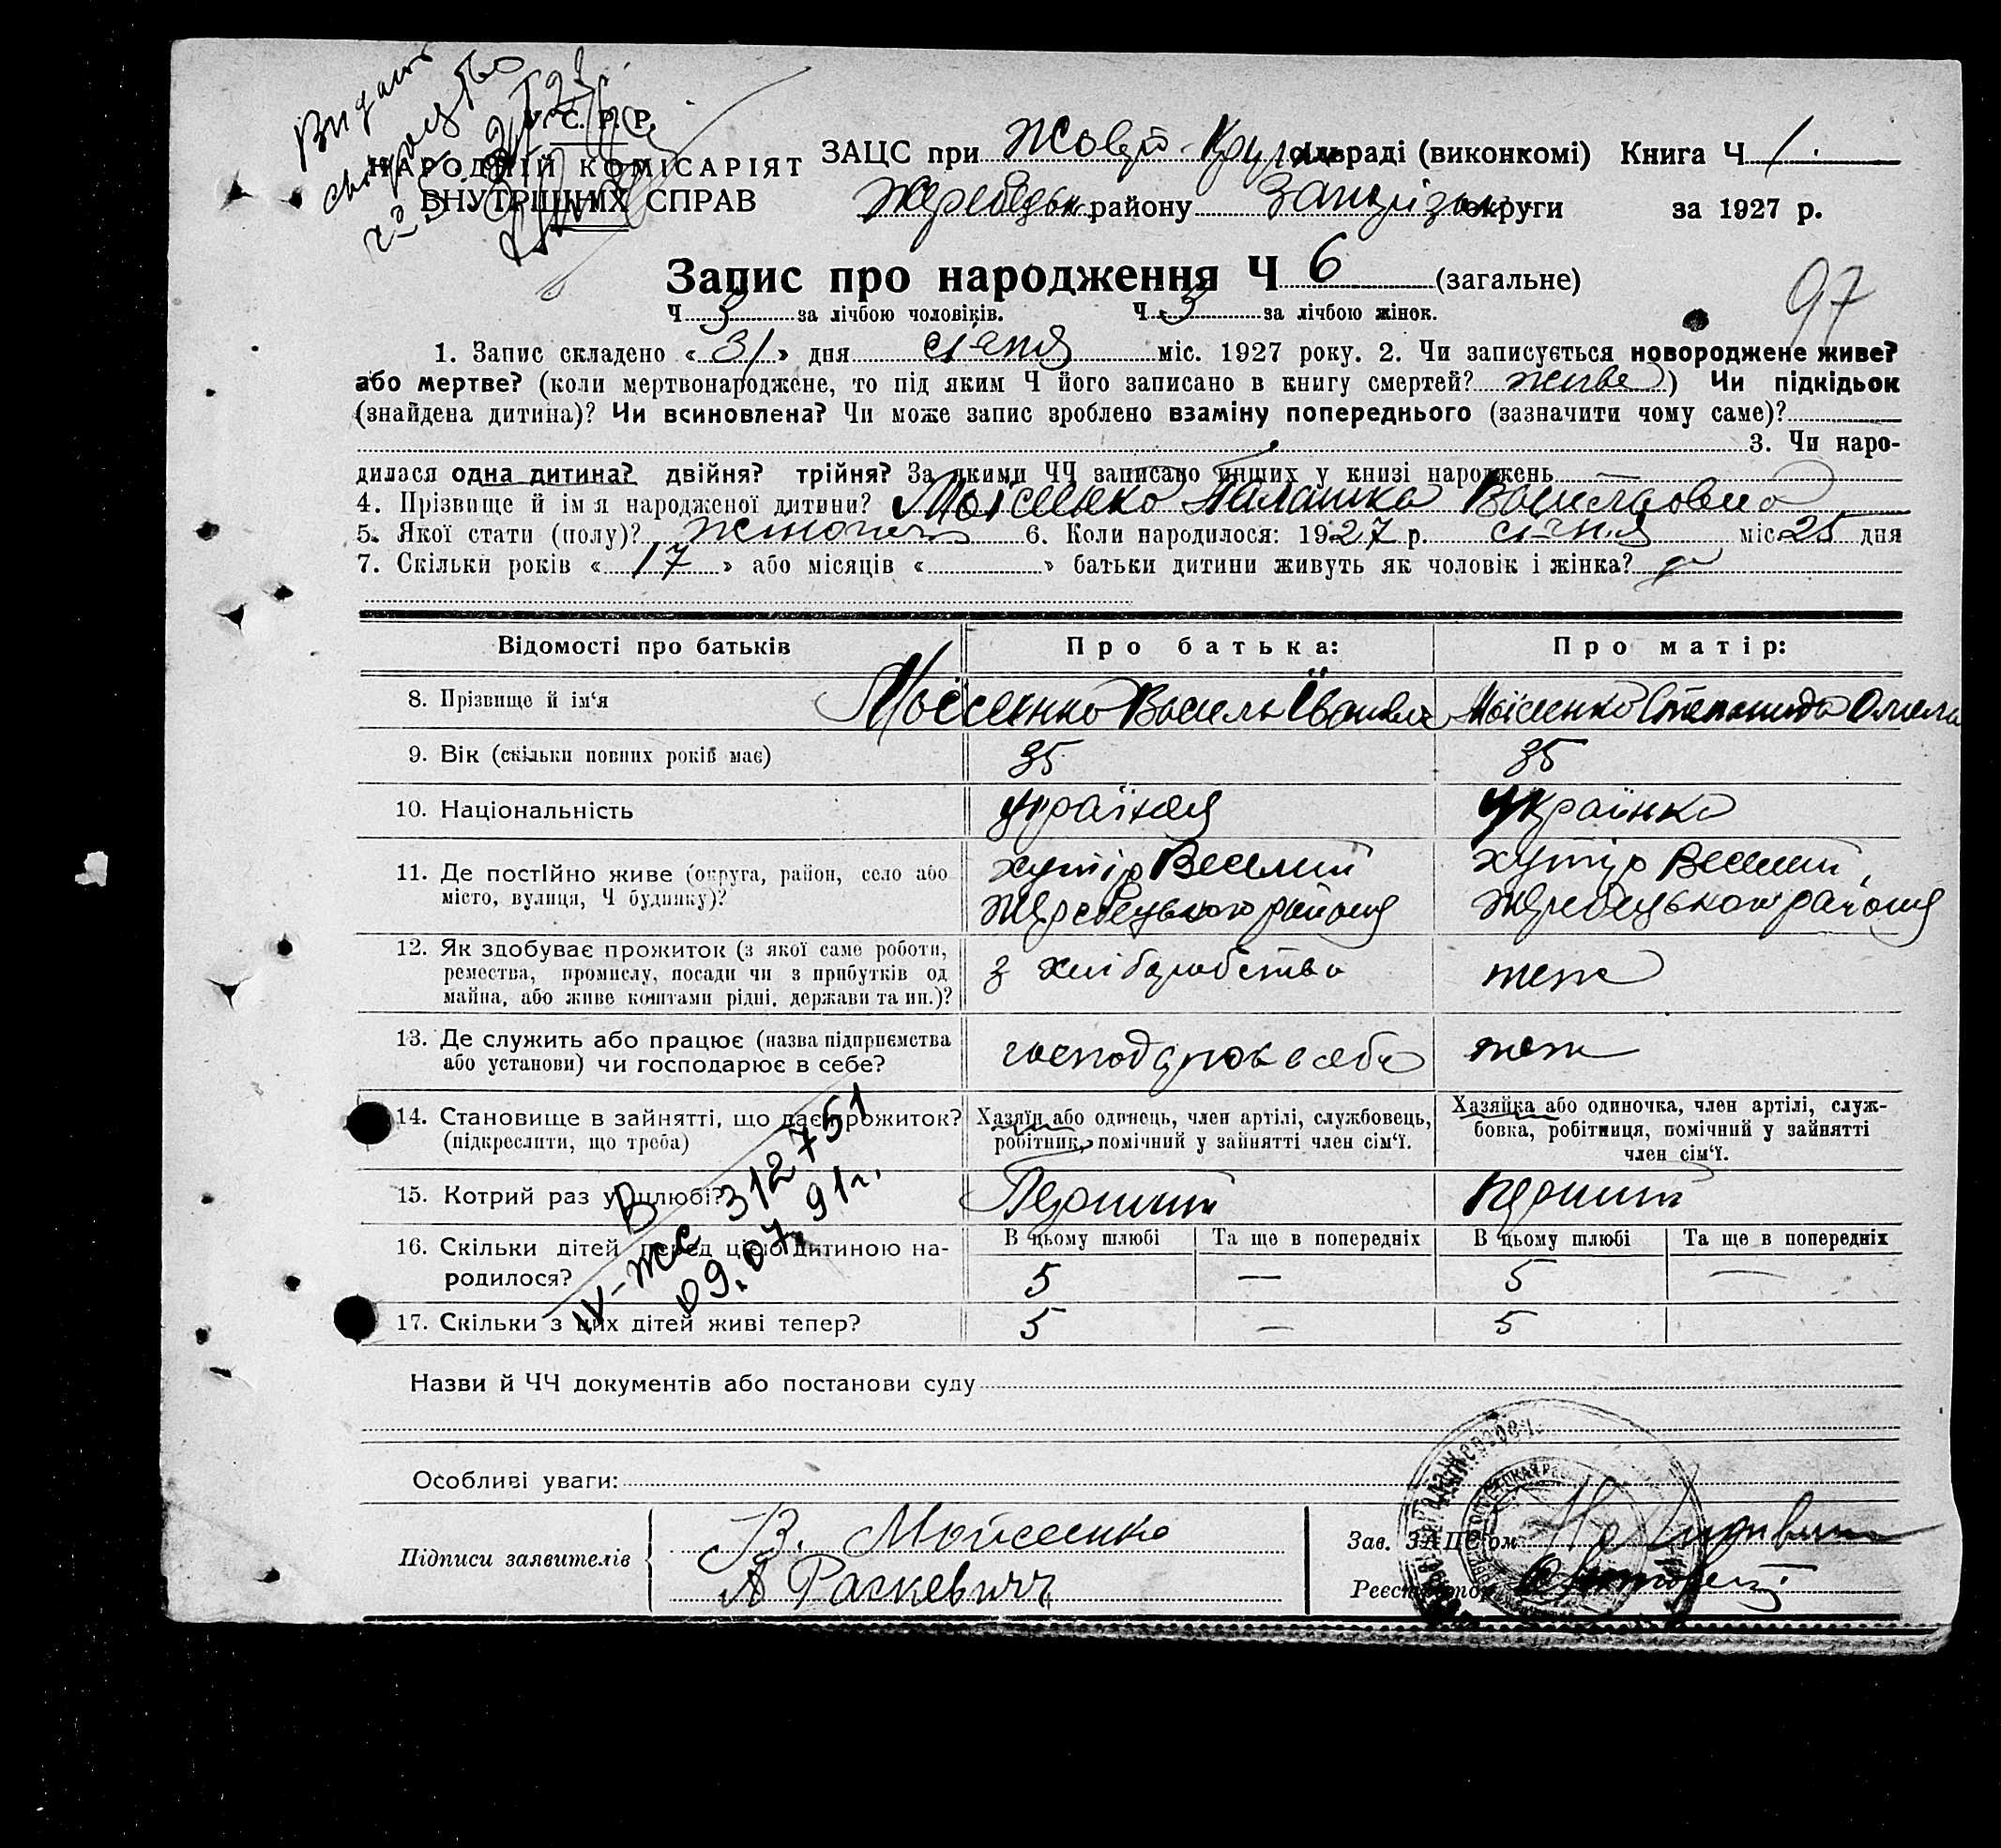 Видано
свідоцтво
У. С. Р. Р.
НАРОДНІЙ КОМІСАРІЯТ
ВНУТРІШНІХ СПРАВ
ЗАЦС при Жовто-Круч сільраді (виконкомі) Книга Ч 1.
Жеребецьк. району Запорізьк. округи за 1927 р.
Запис про народження Ч 6 (загальне)
97
Ч 3 за лічбою чоловіків. Ч 3 за лічбою жінок.
1. Запис складено « 31 » дня січня міс. 1927 року. 2. Чи записується новороджене живе?
або мертве? (коли мертвонароджене, то під яким Ч його записано в книгу смертей? живе ) Чи підкідьок
(знайдена дитина)? Чи всиновлена? Чи може запис зроблено взаміну попереднього (зазначити чому саме)?
3. Чи наро-
дилася одна дитина? двійня? трійня? За якими ЧЧ записано инших у книзі народжень —
4. Прізвище й ім'я народженої дитини? Моісеєнко Палашка Василовна
5. Якої стати (полу)? жіночої 6. Коли народилося: 1927 р. січня міс. 25 дня
7. Скільки років « 17 » або місяців « » батьки дитини живуть як чоловік і жінка?
Відомості про батьків Про батька: Про матір:
8. Прізвище й ім'я Моісеєнко Василь Іванов Моісеєнко Степанида Омеля
9. Вік (скільки повних років має) 35 35
10. Національність українец українка
11. Де постійно живе (округа, район, село або хутір Веселий хутір Веселий,
місто, вулиця, Ч будинку)? Жеребецького району Жеребецького району
12. Як здобуває прожиток (з якої саме роботи,
ремества, промислу, посади чи з прибутків од з хліборобства теж
майна, або живе коштами рідні, держави та ин.)?
13. Де служить або працює (назва підприємства господарює в себе теж
або установи) чи господарює в себе?
14. Становище в зайнятті, що дає прожиток? Хазяїн або одинець, член артілі, службовець, Хазяйка або одиночка, член артілі, служ-
(підкреслити, що треба) робітник, помічний у зайнятті член сім'ї. бовка, робітниця, помічний у зайнятті
член сім'ї.
15. Котрий раз у шлюбі? Первий первий
16. Скільки дітей перед цією дитиною на- В цьому шлюбі Та ще в попередніх В цьому шлюбі Та ще в попередніх
родилося? 5 — 5 —
17. Скільки з цих дітей живі тепер? 5 — 5
В
IV-ЖС 312751
09.07.91г.
Назви й ЧЧ документів або постанови суду
Особливі уваги:
Підписи заявителів В. Мойсеенко Зав. ЗАЦС'ом
А Раскевичъ Реєстратор